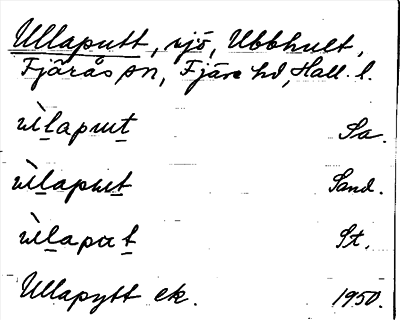 Ullaputt, sjö, Ubbhult,
Fjärås sn, Fjäre hd, Hall. l.
ùllaput Sa.
ùllaput Sand.
ùllaput St.
Ullapytt ek. 1950.